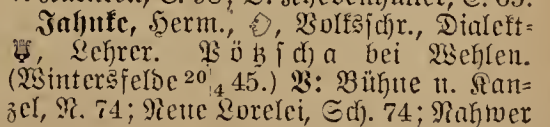 Jahnke, Herm., Volksschr., Dialekt-
Lehrer. Pötzscha bei Wehlen.
(Wintersfelde 20/4 45.) V: Bühne u. Kan-
zel, R. 74; Neue Lorelei, Sch. 74; Nahwer